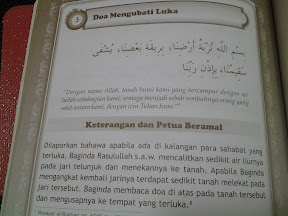 3
Doa Mengubati Luka
بِسْمِ اللَّهِ تُرْبَةُ أَرْضِنَا، بِرِيقَةِ بَعْضِنَا، يُشْفَى
سَقِيمُنَا، بِإِذْنِ رَبِّنَا
"Dengan nama Allah, tanah bumi kami yang bercampur dengan air
ludah sebahagian kami, semoga menjadi sebab sembuhnya orang yang
sakit antara kami, dengan izin Tuhan kami."
Keterangan dan Petua Beramal
Dilaporkan bahawa apabila ada di kalangan para sahabat yang
terluka, Baginda Rasulullah s.a.w. mencalitkan sedikit air liurnya
pada jari telunjuk dan menekannya ke tanah. Apabila Baginda
mengangkat kembali jarinya terdapat sedikit tanah melekat pada
jari tersebut. Baginda membaca doa di atas pada tanah tersebut
dan mengusapnya ke tempat yang terluka.